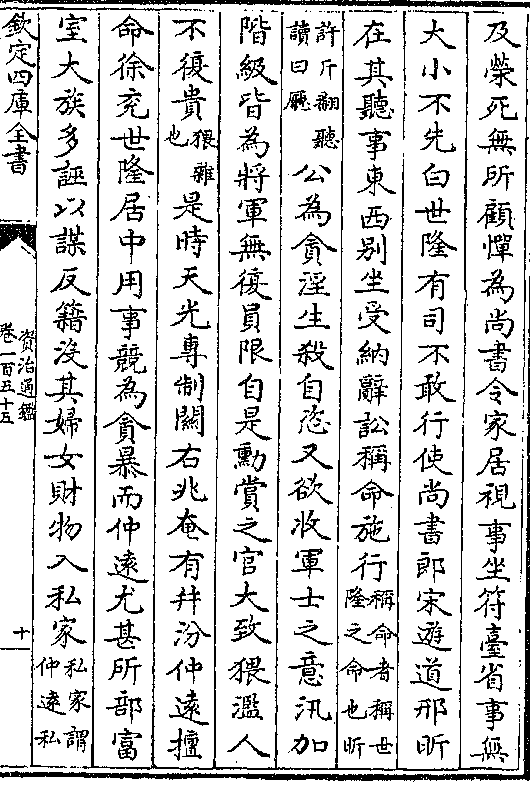 及榮死無所顧憚為尚書令家居視事坐符臺省事無
大小不先白世隆有司不敢行使尚書郎宋遊道邢昕
在其聽事東西别坐受納辭訟稱命施行稱命者稱世隆之命也昕
許斤翻聽讀曰廳公為貪淫生殺自恣又欲收軍士之意汎加
階級皆為將軍無復員限自是勳賞之官大致猥濫人
不復貴猥雜也是時天光專制關右兆奄有并汾仲遠擅
命徐兖世隆居中用事競為貪暴而仲遠尤甚所部富
室大族多誣以謀反籍没其婦女財物入私家私家謂仲遠私
欽定四庫全書
資治通鑑
卷一百五十五
十